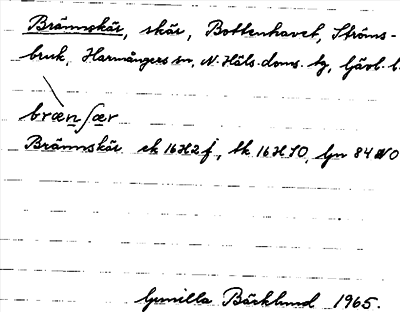 Brännskär, skär, Bottenhavet, Ströms-
bruk, Harmångers sn, N. Häls. doms. tg, Gävl. l.
bræn ʃær
Brännskär. ek 16H2f, tk 16H SO, Gn 84 NO
Gunilla Bäcklund 1965.